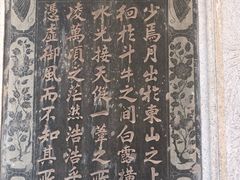 少焉月出於東山之上
徊於斗牛之間白露橫
水光接天縱一葦之所
凌萬頃之茫然浩浩乎
憑虛御風而不知其所